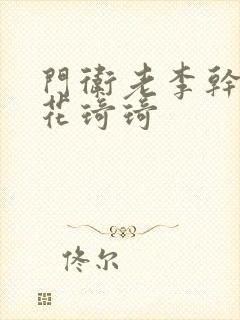 門衛老李幹
花琦琦
佟尔